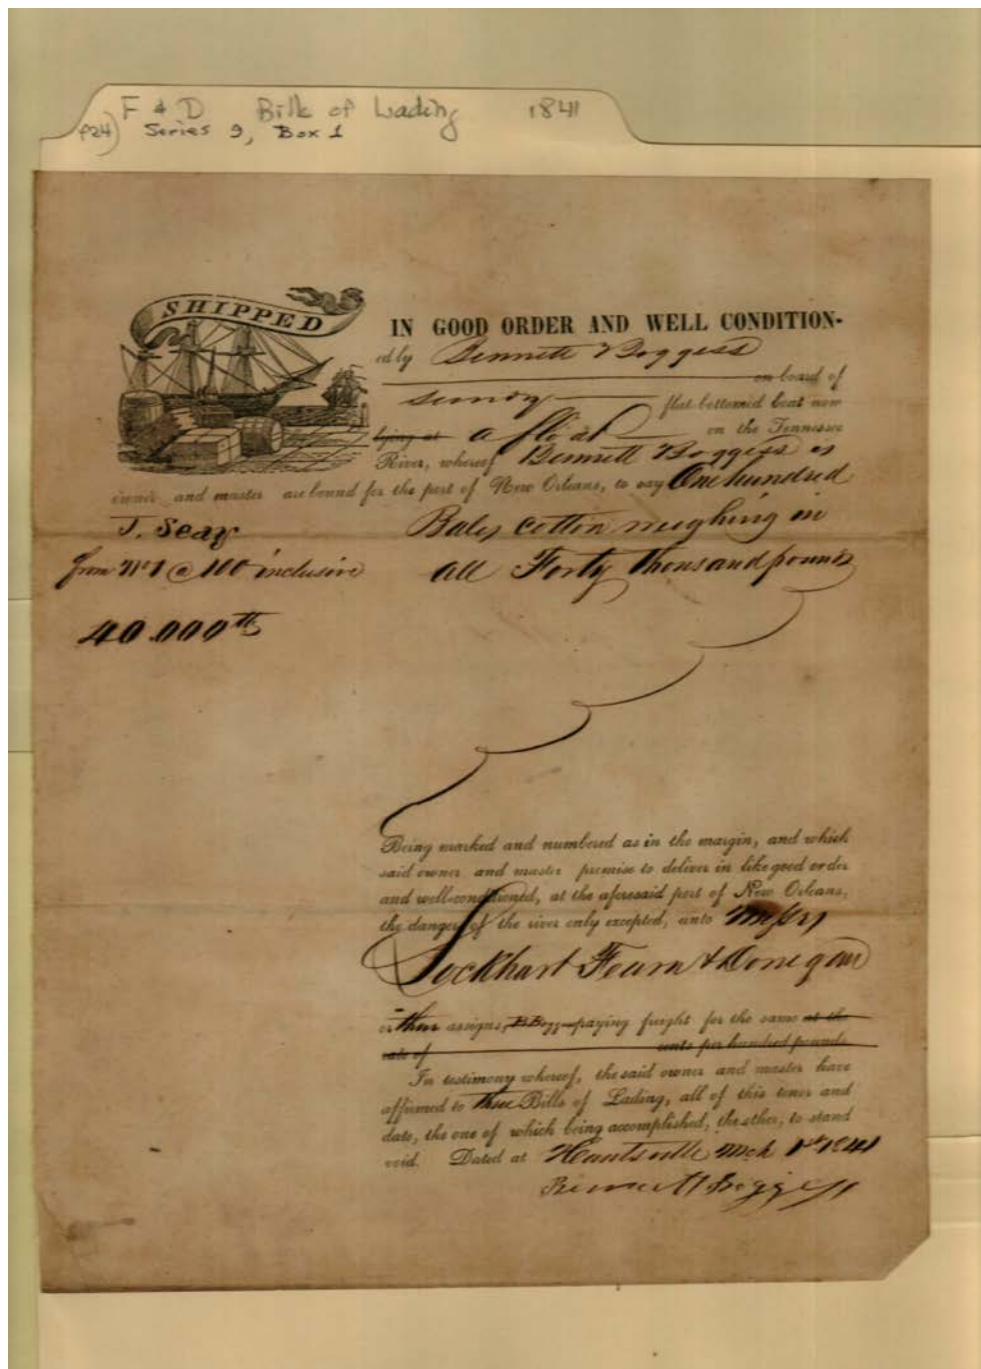 F & D Bills of Lading 1841
P24) Series 9, Box 1
SHIPPED
IN GOOD ORDER AND WELL CONDITION-
ed by Bennett Boggess
on board of
flat-bottomed boat now
lying at afloat on the Tennessee
River, whereof Bennett Boggess is
owner and master are bound for the port of New Orleans, to say One hundred
T. Seay Bales cotton weighing in
from No 1 @ 100 inclusive all Forty thousand pounds
40.000 lb
Being marked and numbered as in the margin, and which
said owner and master promise to deliver in like good order
and well-conditioned, at the aforesaid port of New Orleans,
the danger of the river only excepted, unto Messrs
Lockhart Fearn & Donegan
or their assigns, paying freight for the same at the
rate of cents per hundred pounds
In testimony whereof, the said owner and master have
affirmed to three Bills of Lading, all of this tenor and
date, the one of which being accomplished, the other, to stand
void. Dated at Huntsville Mch 1st 1841
Bennett Boggess